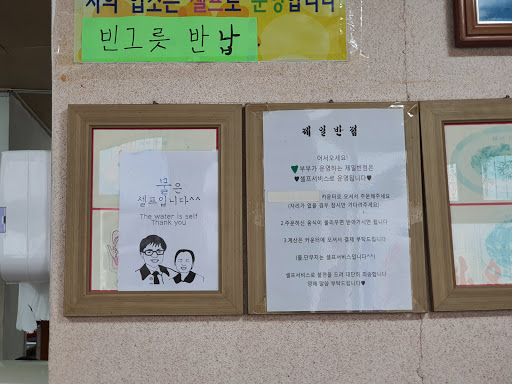 저희 업소는 셀프로 운영합니다
빈그릇 반납
물은
셀프입니다^^
The water is self
Thank you
제일반점
어서오세요!
♥부부가 운영하는 제일반점은
♥셀프서비스로 운영됩니다♥
카운터로 오셔서 주문해주세요
(자리가 없을 경우 잠시만 기다려주세요)
2.주문하신 음식이 불리우면 받아가시면 됩니다
3.계산은 카운터에 오셔서 결제 부탁드립니다
(물,단무지는 셀프서비스입니다^^)
셀프서비스로 불편을 드려 대단히 죄송합니다
양해 말씀 부탁드립니다♥